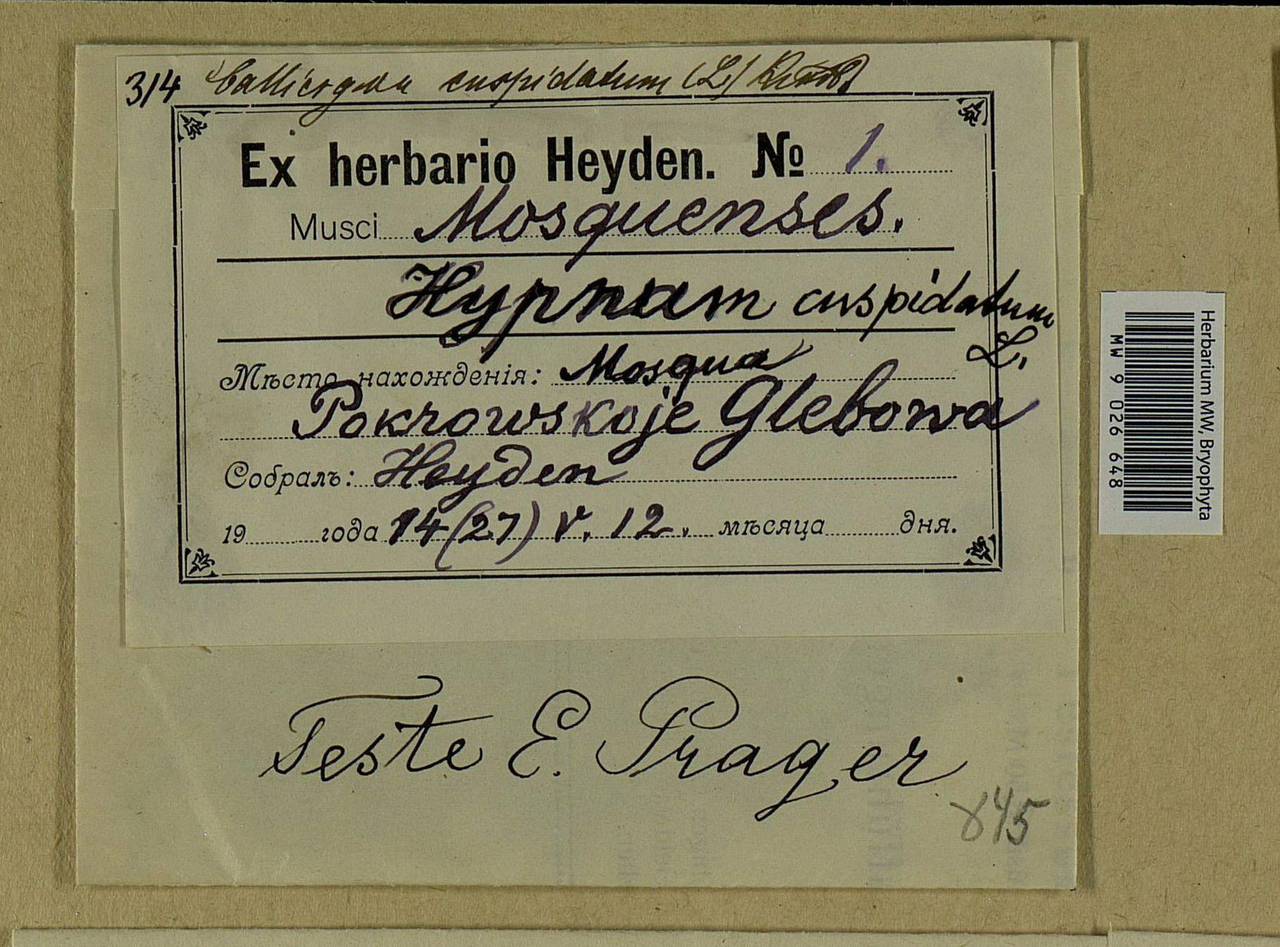 314 Calliergon cuspidatum (L) Kindb
Ex herbario Heyden. № 1.
Musci Mosquenses.
Hypnum cuspidatum
L.
Мѣсто нахожденія: Mosqua
Pokrowskoje Glebowa
Собралъ: Heyden
19 года 14(27) V. 12. мѣсяца дня.
Teste E. Prager
845
Herbarium MW, Bryophyta
MW 9 026 648